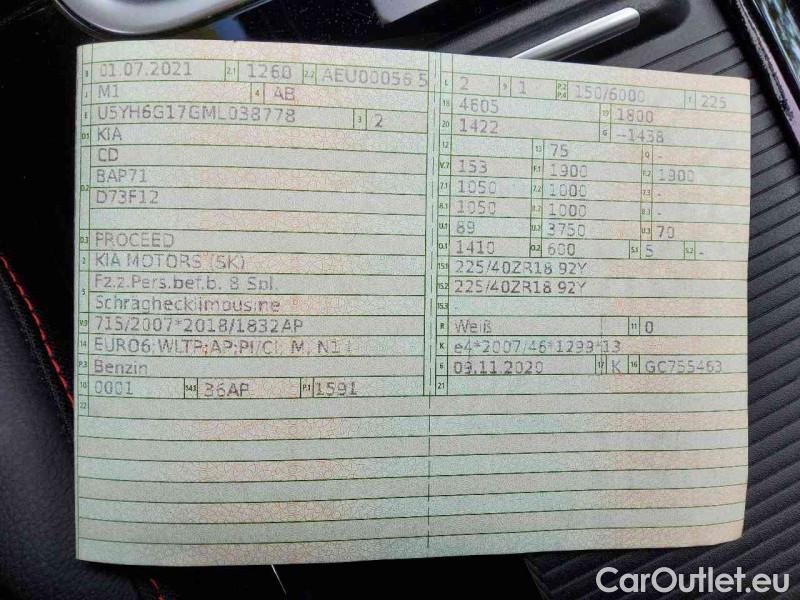 B 01.07.2021 2.1 1260 2.2 AEU00056 5
J M1 4 AB
E U5YH6G17GML038778 3 2
D.1 KIA
CD
D.2 BAP71
D73F12
D.3 PROCEED
2 KIA MOTORS (SK)
5 Fz.z.Pers.bef.b. 8 Spl.
Schräghecklimousine
V.9 715/2007*2018/1832AP
14 EURO6;WLTP;AP;PI/CI, M, N1 I
P.3 Benzin
10 0001 14.1 36AP P.1 1591
22
L 2 9 1 P.2 P.4 150/6000 T 225
18 4605 19 1800
20 1422 G -1438
12 13 75 Q -
V.7 153 F.1 1900 F.2 1900
7.1 1050 7.2 1000 7.3 -
8.1 1050 8.2 1000 8.3 -
U.1 89 U.2 3750 U.3 70
O.1 1410 O.2 600 S.1 5 S.2 -
15.1 225/40ZR18 92Y
15.2 225/40ZR18 92Y
15.3 -
R Weiß 11 0
K e4*2007/46*1299*13
6 09.11.2020 17 K 16 GC755463
21
CarOutlet.eu